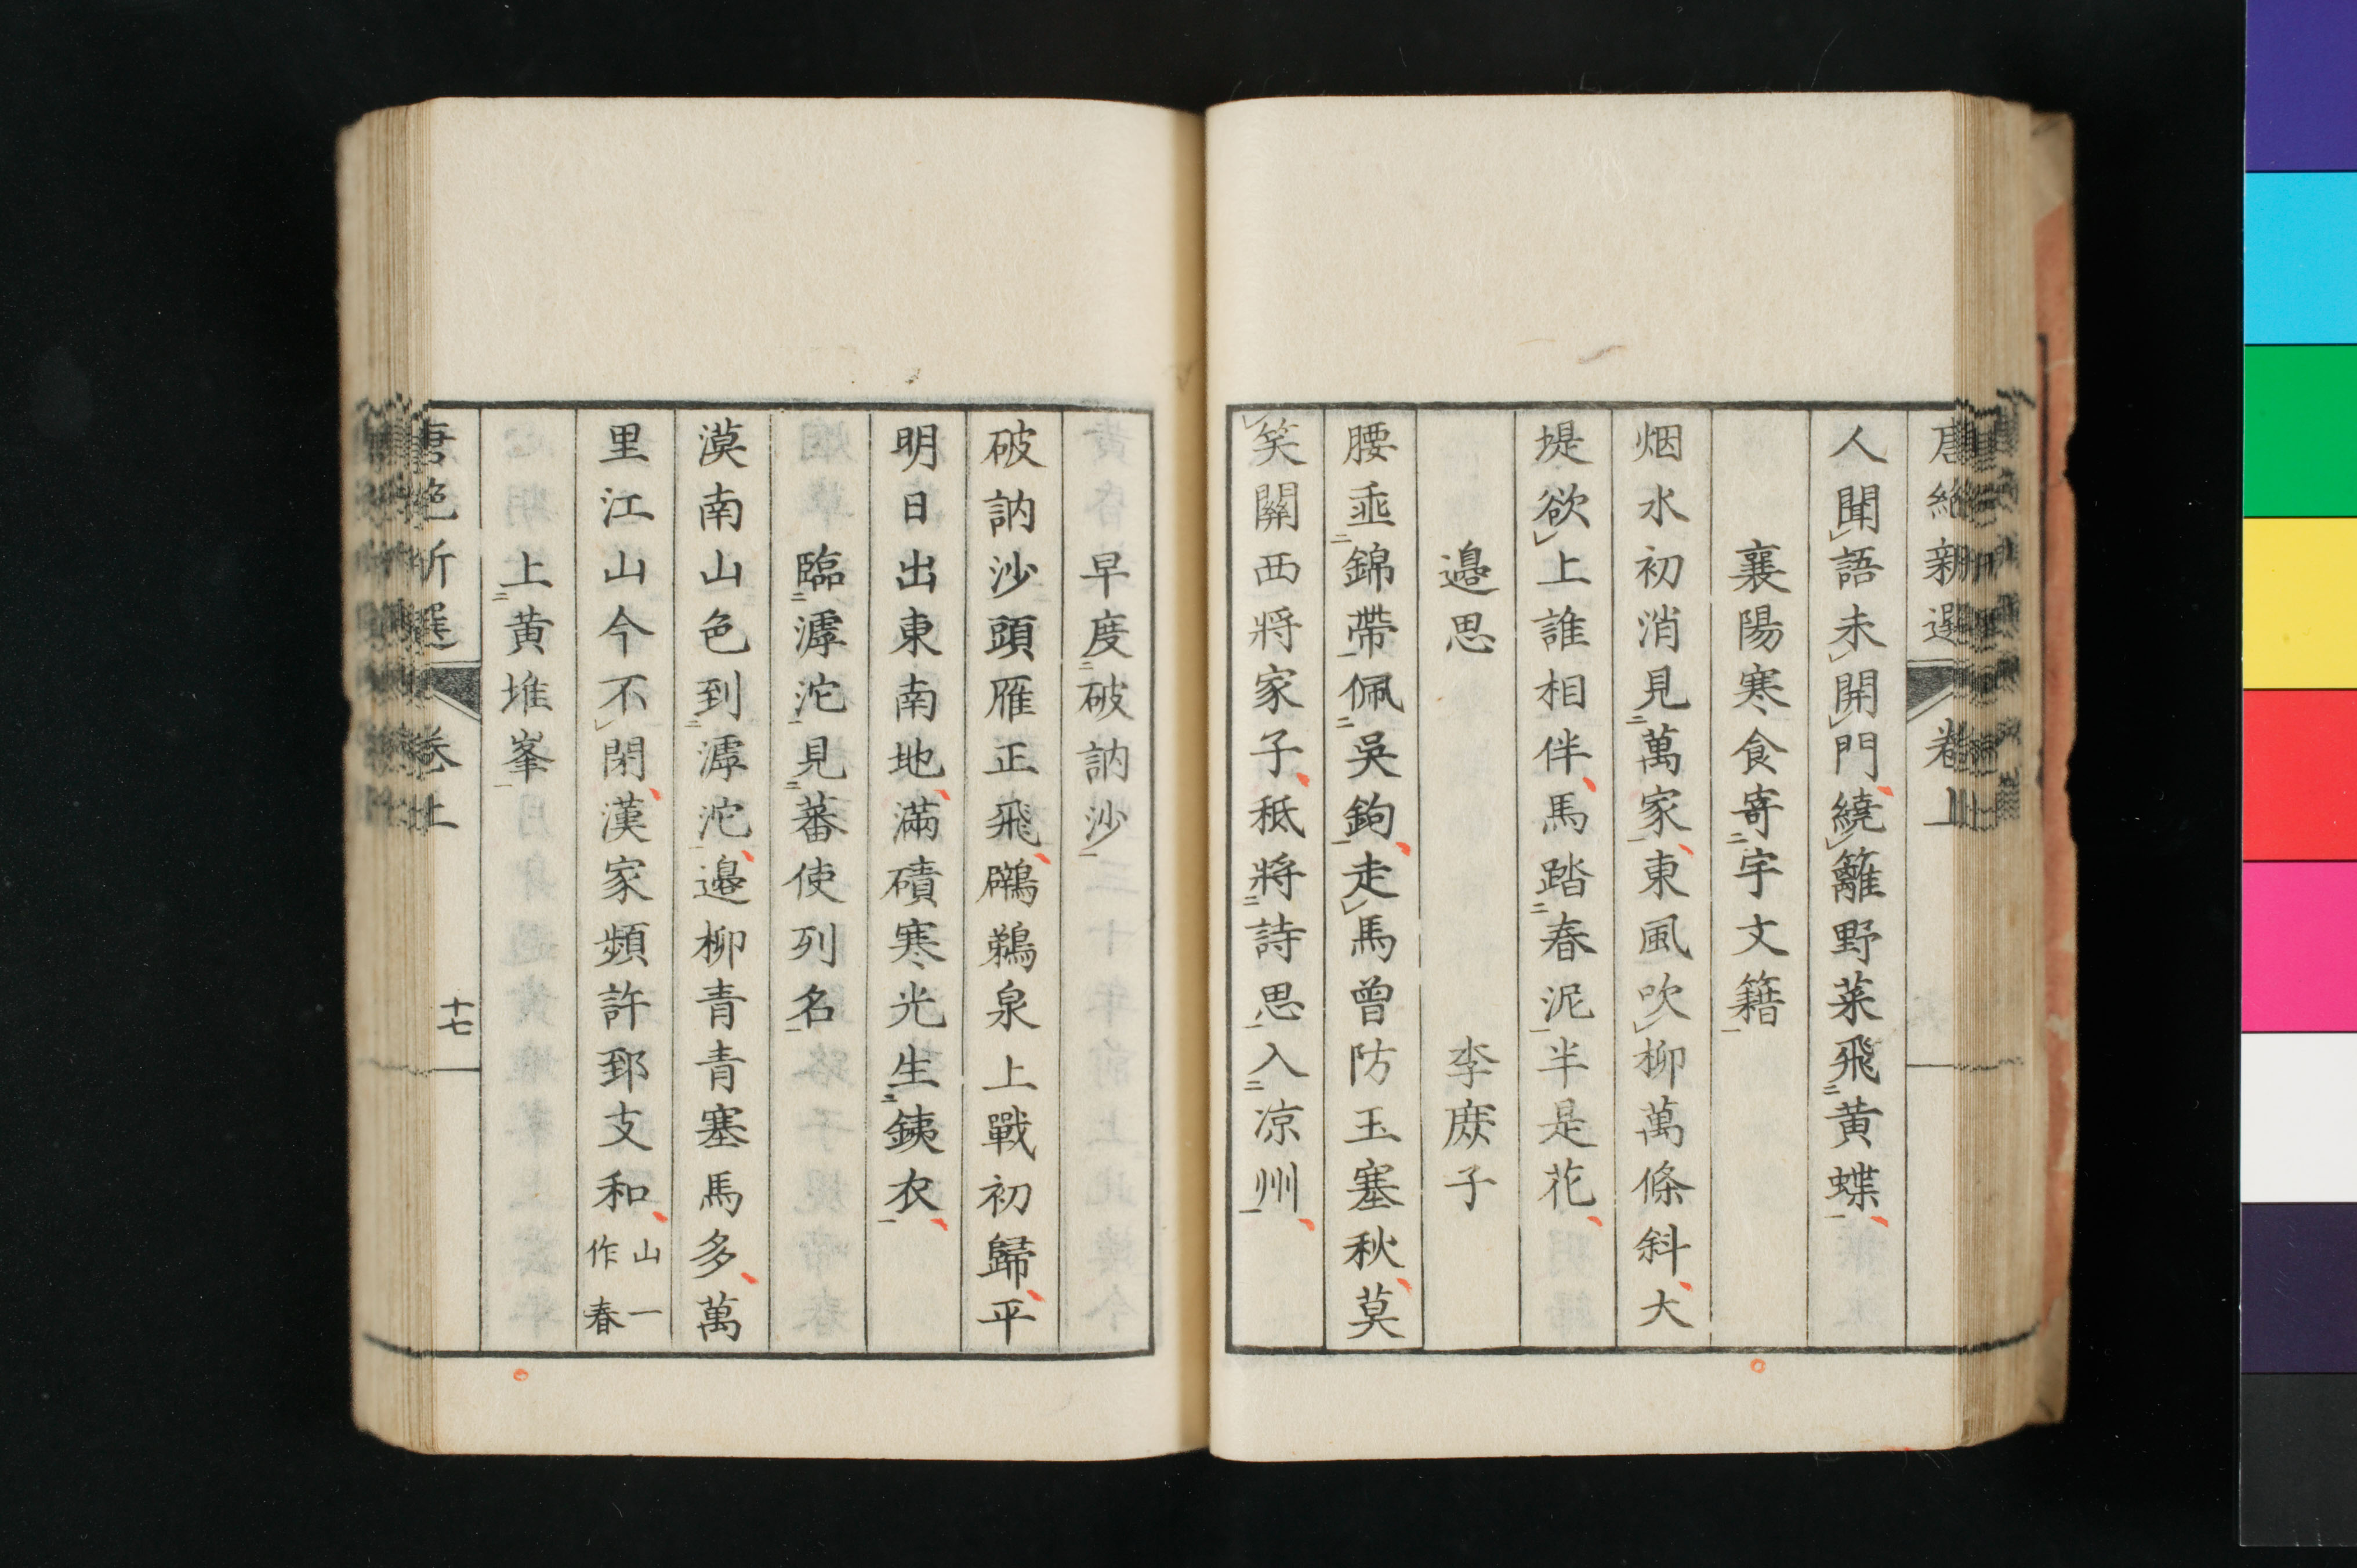 唐絶新選 卷上
人聞語未開門繞籬野菜飛黄蝶
襄陽寒食寄宇文籍
烟水初消見萬家東風吹柳萬條斜大
堤欲上誰相伴馬踏春泥半是花
邉思 李庻子
腰垂錦帶佩吳鉤走馬曾防玉塞秋莫
笑關西將家子秪將詩思入凉州
早度破訥沙
破訥沙頭雁正飛鸊鵜泉上戰初歸平
明日出東南地滿磧寒光生銕衣
臨滹沱見蕃使列名
漠南山色到滹沱邉柳青青塞馬多萬
里江山今不閉漢家頻許郅支和山一作春
上黄堆峯
唐絶新選 卷上 十七